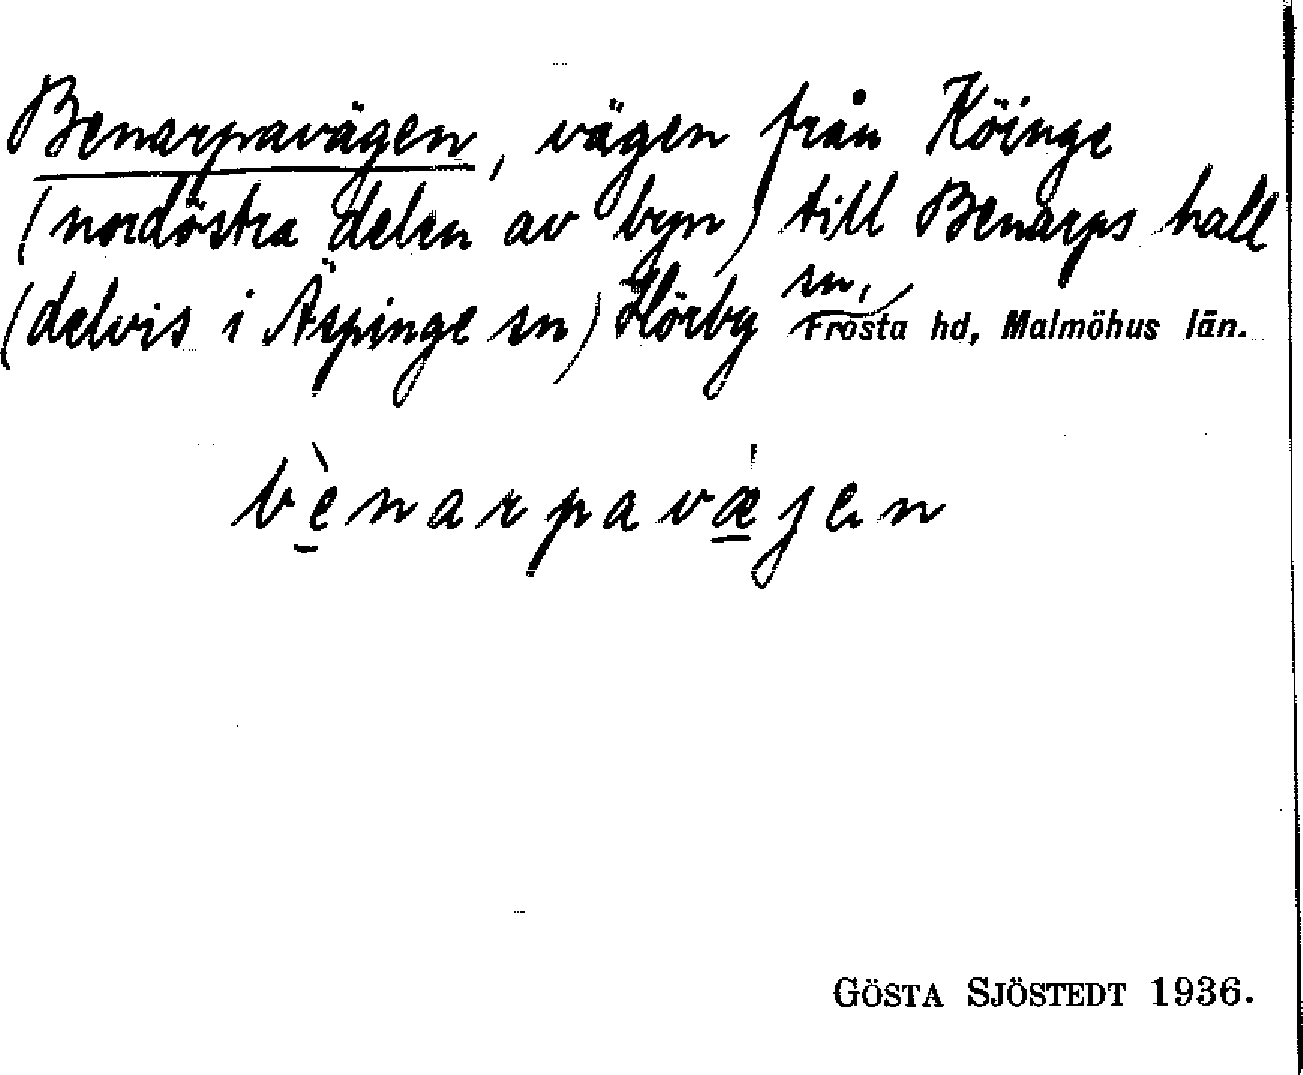 Benarpavägen, vägen från Köinge
(nordöstra delen av byn) till Benarps hall
(delvis i Äspinge sn) Hörby sn, Frosta hd, Malmöhus län.
bènarpavæ̍jen
GÖSTA SJÖSTEDT 1936.